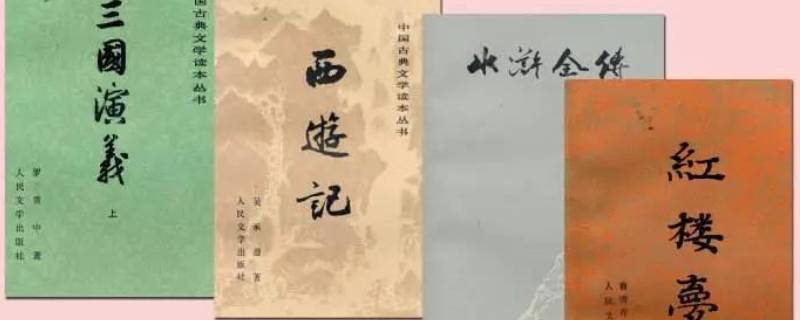 国古典文学读本丛书
三國演義
上
罗贯中著
人民文学出版社
中国古典文学读本丛书
西遊記
吴承恩著
人民文学出版社
水滸全傳
紅楼夢
曹雪芹
人民文